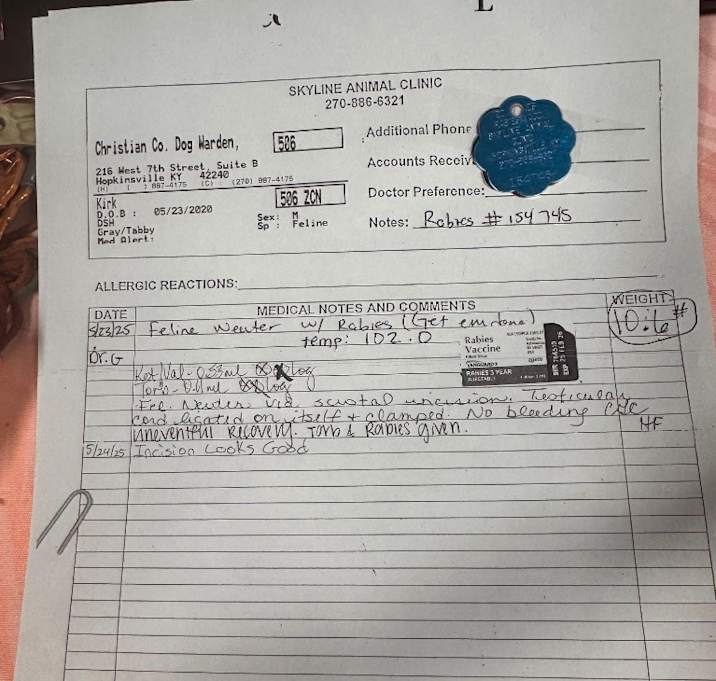 L
SKYLINE ANIMAL CLINIC
270-886-6321
Christian Co. Dog Warden,
506
Additional Phone
216 West 7th Street, Suite B
Hopkinsville KY 42240
(H) ( ) 887-4175 (C) : (270) 987-4175
Accounts Receiv
Kirk
506 ZCN
Doctor Preference:
D.O.B : 05/23/2020
Sex: M
DSH
Sp : Feline
Gray/Tabby
Med Alert:
Notes: Rabies # 154745
ALLERGIC REACTIONS:
DATE
MEDICAL NOTES AND COMMENTS
WEIGHT
5/23/25 Feline Neuter w/ Rabies (Get em done)
10.6#
temp: 102.0
Dr. G
Rabies
Vaccine
VANGUARD
RABIES 3 YEAR
Ket/Val - 0.53ml log
Torb - log
Fel. Neuter via scrotal incision. Testicular
cord ligated on itself + clamped. No bleeding
uneventful recovery. Torb & Rabies given.
HF
5/24/25 Incision Looks Good